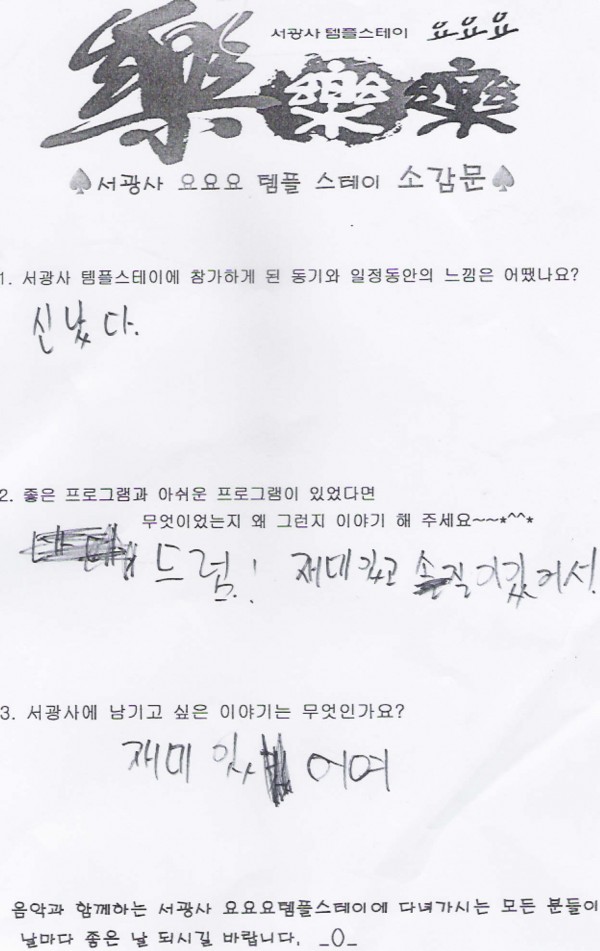 서광사 템플스테이 요요요
樂 樂 樂
서광사 요요요 템플 스테이 소감문
1. 서광사 템플스테이에 참가하게 된 동기와 일정동안의 느낌은 어땠나요?
신났다.
2. 좋은 프로그램과 아쉬운 프로그램이 있었다면
무엇이었는지 왜 그런지 이야기 해 주세요~~*^^*
드럼! 재미있고
3. 서광사에 남기고 싶은 이야기는 무엇인가요?
재미 있 어여
음악과 함께하는 서광사 요요요템플스테이에 다녀가시는 모든 분들이
날마다 좋은 날 되시길 바랍니다. _()_